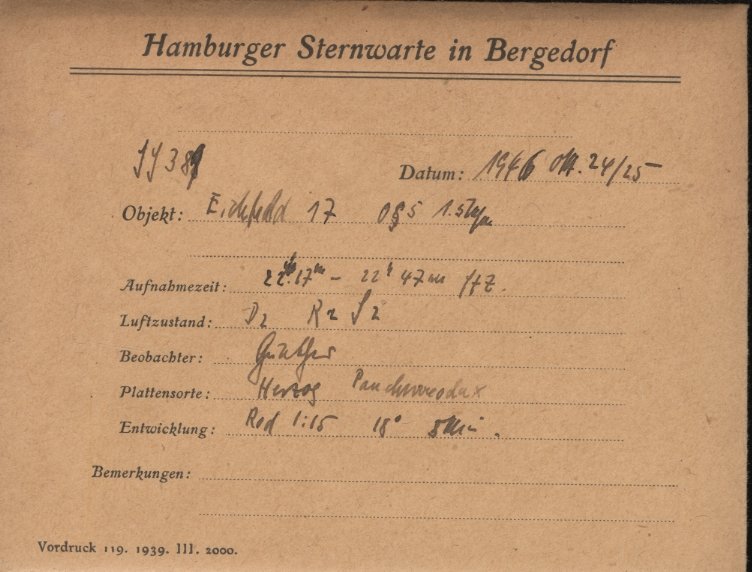 Hamburger Sternwarte in Bergedorf
Datum: 1946 Okt. 24/25
Objekt: Eichfeld 17
Aufnahmezeit: 22h 17m - 22h 47m
Luftzustand: D2 R2 S2
Beobachter:
Plattensorte: Herzog
Entwicklung: Rod 1:15 18° 5 Min.
Bemerkungen:
Vordruck 119. 1939. III. 2000.